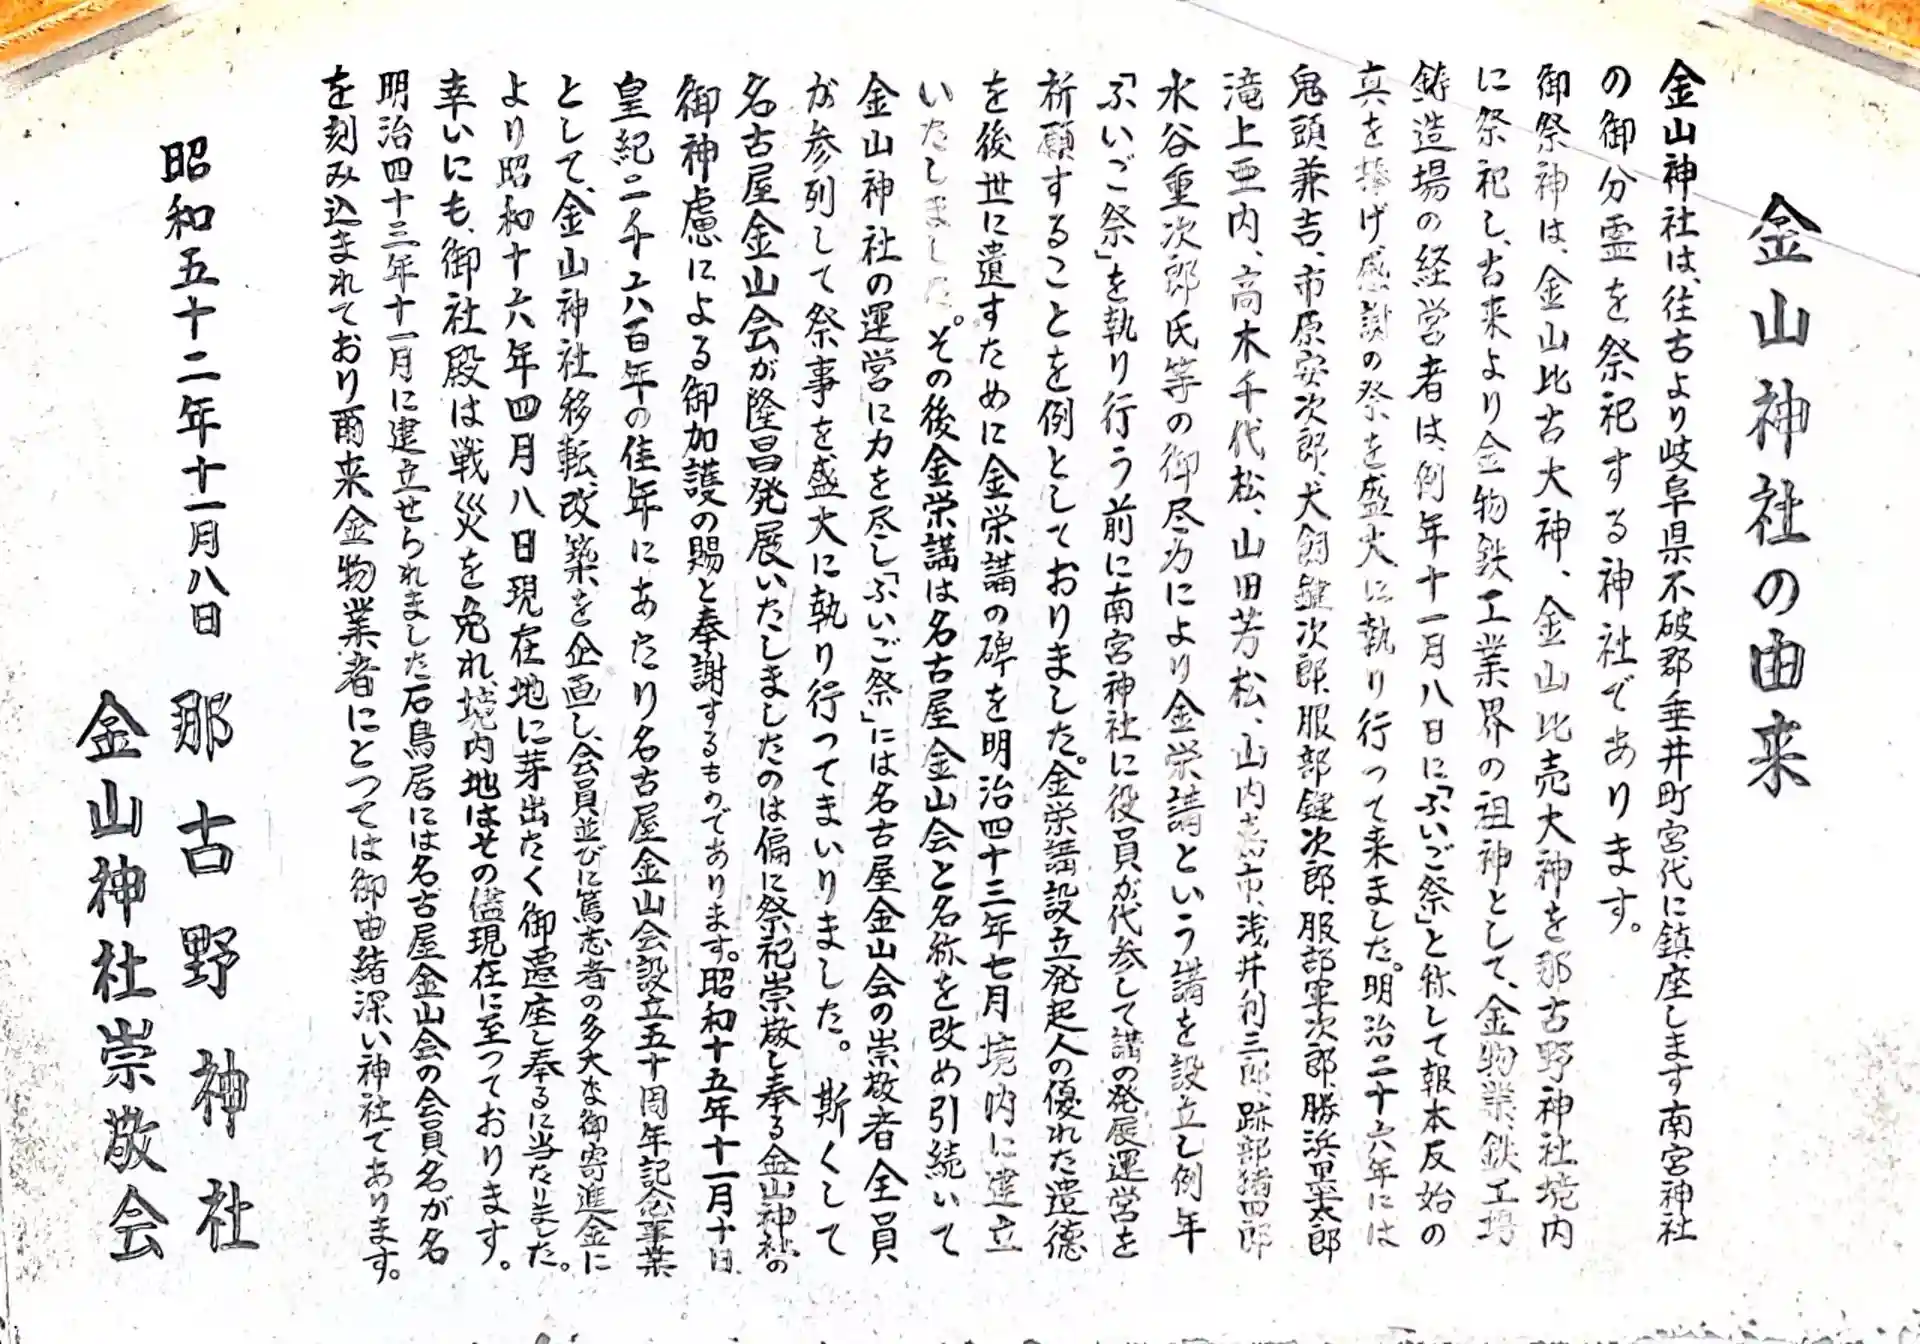 金山神社の由来
金山神社は、往古より岐阜県不破郡垂井町宮代に鎮座します南宮神社
の御分霊を祭祀する神社であります。
御祭神は、金山比古大神、金山比売大神を那古野神社境内
に祭祀し、古来より金物鉄工業界の祖神として、金物業、鉄工場
鋳造場の経営者は、例年十一月八日に「ふいご祭」と称して報本反始の
真を捧げ感謝の祭を盛大に執り行って来ました。明治二十六年には
鬼頭兼吉、市原安次郎、犬飼鍵次郎、服部鍵次郎、服部軍次郎、勝浜黒太郎
滝上亜内、高木千代松、山田芳松、山内市、浅井利三郎、跡部猪四郎
水谷重次郎氏等の御尽力により金栄講という講を設立し例年
「ふいご祭」を執り行う前に南宮神社に役員が代参して講の発展運営を
祈願することを例としておりました。金栄講設立発起人の優れた遺徳
を後世に遺すために金栄講の碑を明治四十三年七月境内に建立
いたしました。その後金栄講は名古屋金山会と名称を改め引続いて
金山神社の運営に力を尽し「ふいご祭」には名古屋金山会の崇敬者全員
が参列して祭事を盛大に執り行ってまいりました。斯くして
名古屋金山会が隆昌発展いたしましたのは偏に祭祀崇敬し奉る金山神社の
御神慮による御加護の賜と奉謝するものであります。昭和十五年十一月十日
皇紀二千六百年の佳年にあたり名古屋金山会設立五十周年記念事業
として、金山神社移転、改築、を企画し、会員並びに篤志者の多大な御寄進金に
より昭和十六年四月八日現在地に芽出たく御遷座し奉るに当たりました。
幸いにも、御社殿は戦災を免れ、境内地はその儘現在に至っております。
明治四十三年十一月に建立せられました石鳥居には名古屋金山会の会員名が名
を刻み込まれており爾来金物業者にとっては御由緒深い神社であります。
昭和五十二年十一月八日 那古野神社
金山神社崇敬会